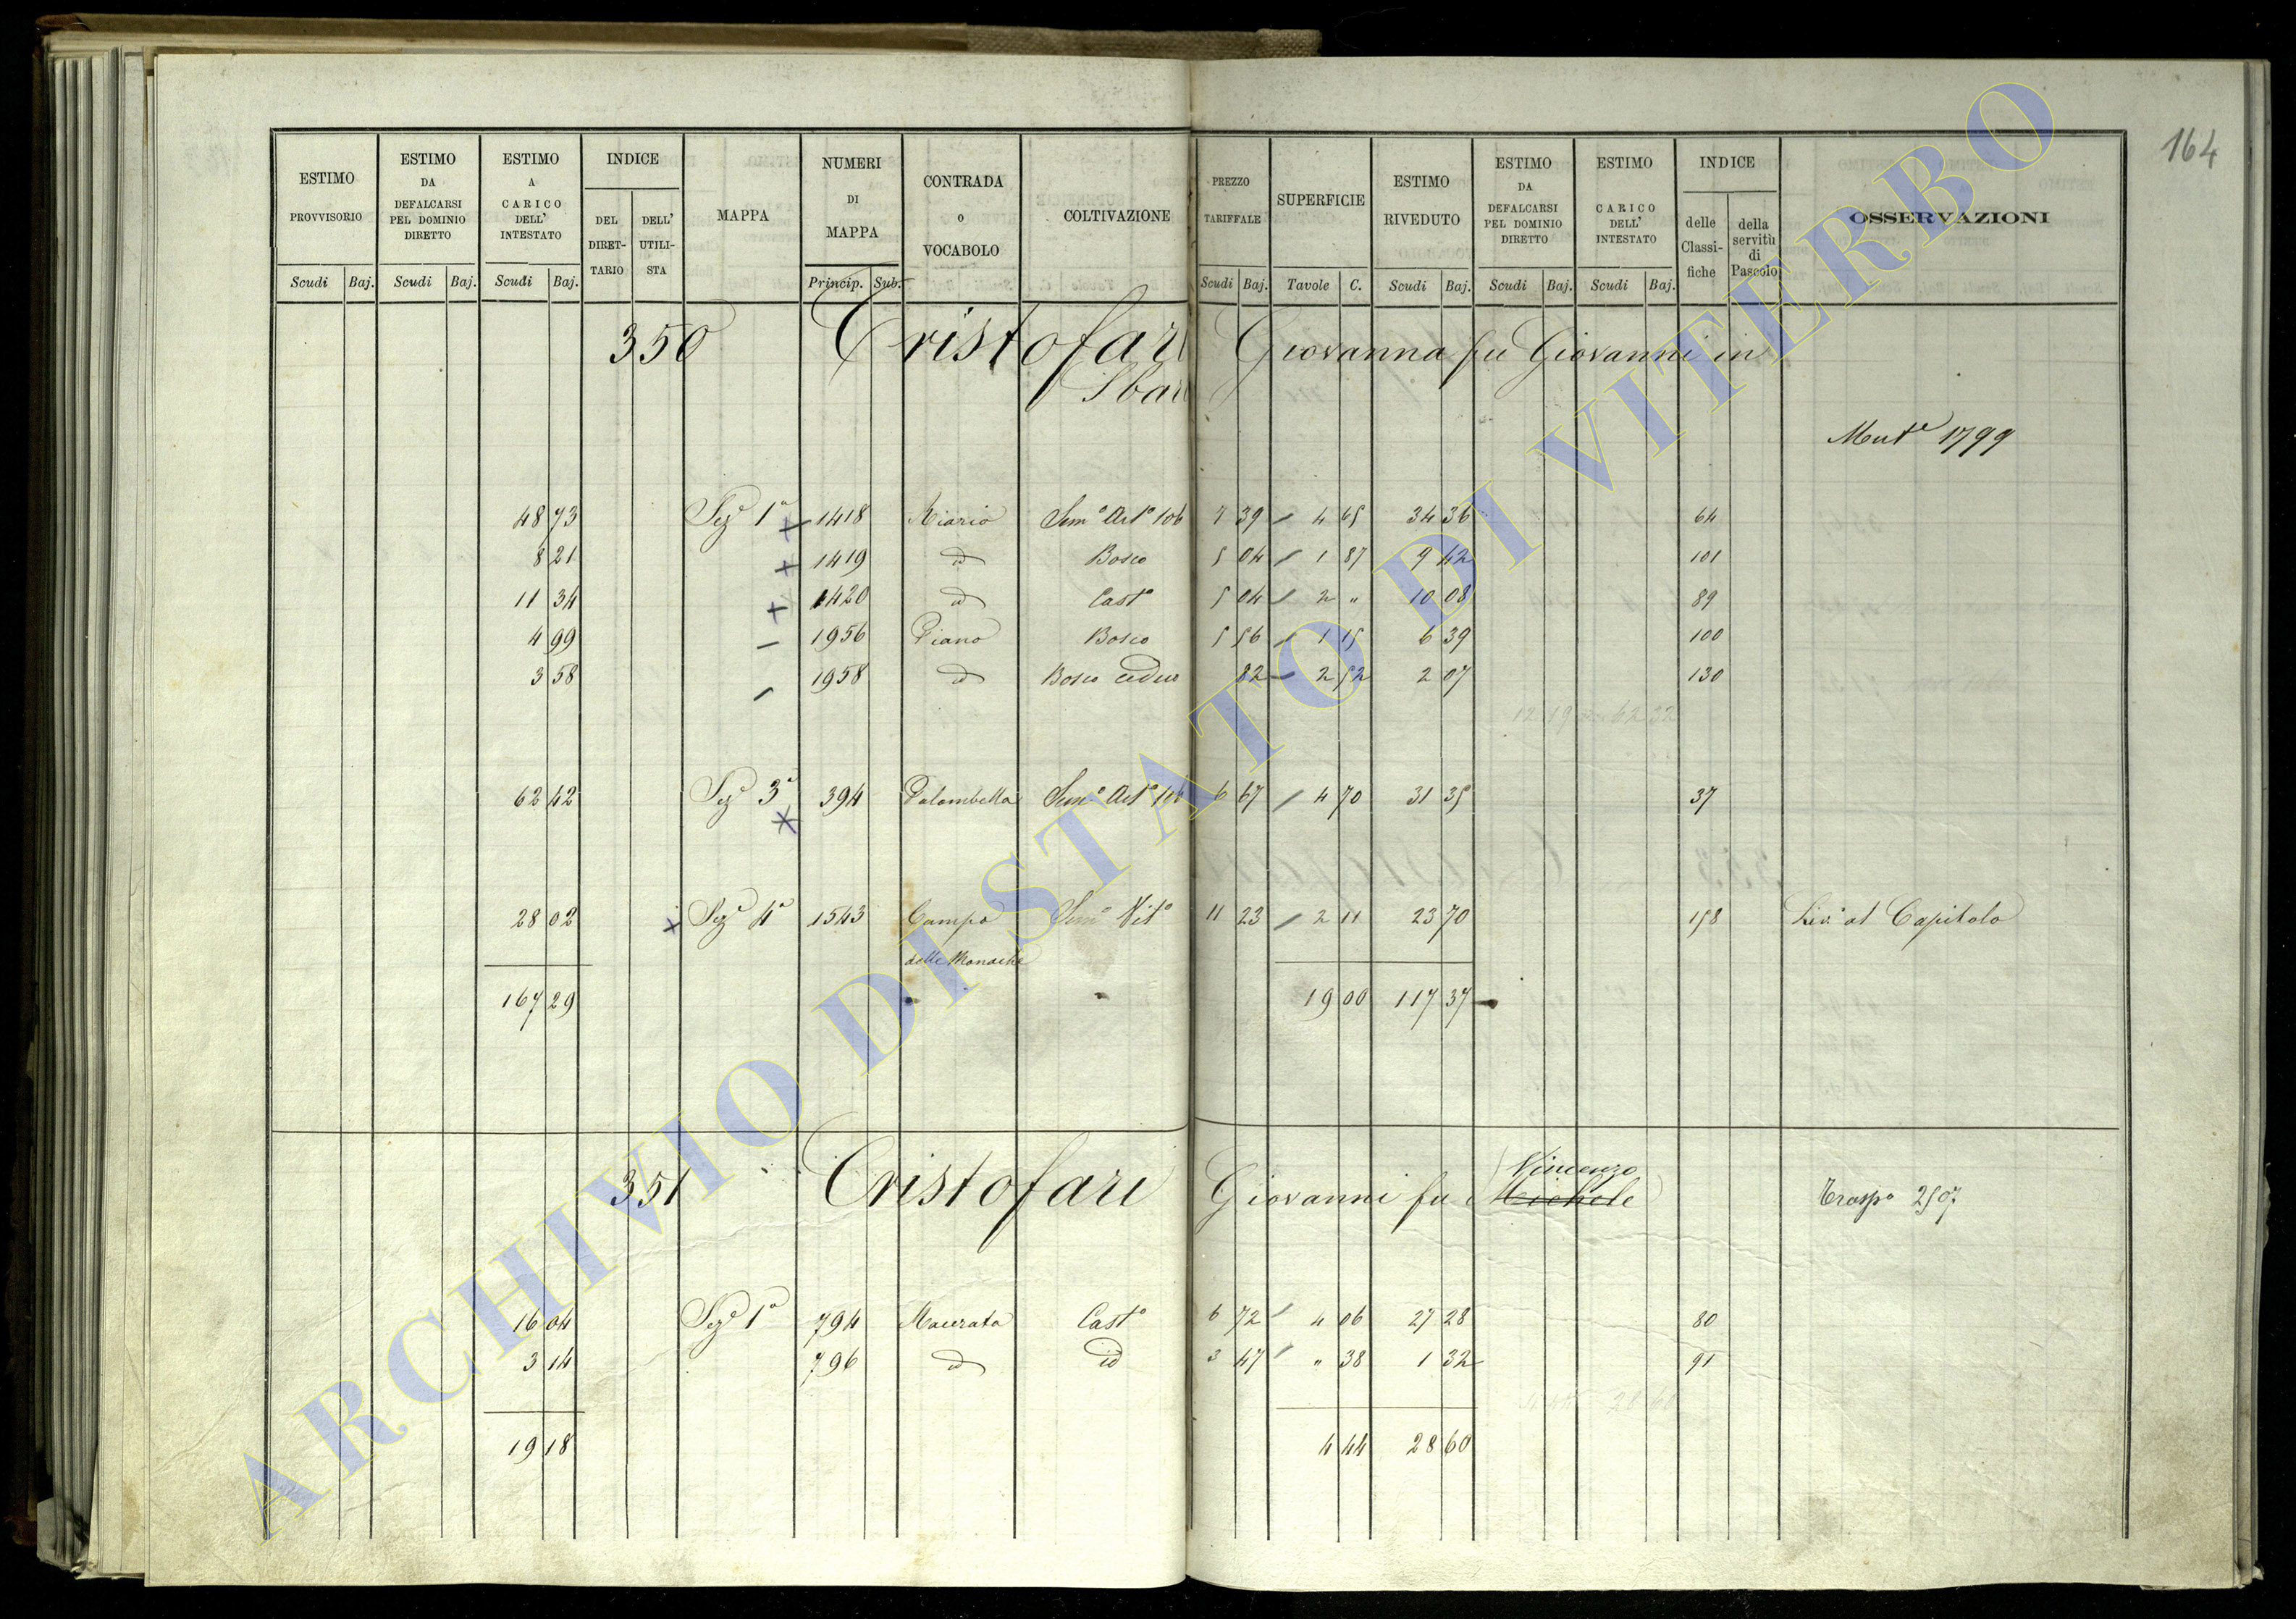 164
ESTIMO PROVVISORIO | ESTIMO DA DEFALCARSI PEL DOMINIO DIRETTO | ESTIMO A CARICO DELL' INTESTATO | INDICE | MAPPA | NUMERI DI MAPPA | CONTRADA o VOCABOLO | COLTIVAZIONE | PREZZO TARIFFALE | SUPERFICIE | ESTIMO RIVEDUTO | ESTIMO DA DEFALCARSI PEL DOMINIO DIRETTO | ESTIMO A CARICO DELL' INTESTATO | INDICE | OSSERVAZIONI
DEL DIRET-TARIO | DELL' UTILI-STA | delle Classi-fiche | della servitù di Pascolo
Scudi | Baj. | Scudi | Baj. | Scudi | Baj. | Princip. | Sub. | Scudi | Baj. | Tavole | C. | Scudi | Baj. | Scudi | Baj. | Scudi | Baj.
350 Cristofari Giovanna fu Giovanni in
Sbar
Mut.e 1799
48 73 Sez.e 1a + 1418 Riario Sem.o Art.o 106 7 39 / 4 65 34 36 64
8 21 + 1419 id Bosco 5 04 / 1 87 9 42 101
11 34 + 1420 id Cast.o 5 04 / 2 " 10 08 89
4 99 – 1956 Piano Bosco 5 56 / 1 15 6 39 100
3 58 – 1958 id Bosco ceduo 82 – 2 52 2 07 130
12 19 62 32
62 42 Sez.e 3a * 394 Palombella Sem.o Art.o 106 6 67 / 4 70 31 35 37
28 02 x Sez.e 4a 1543 Campo Sem.o Vit.o 11 23 / 2 11 23 70 158 Liv.o al Capitolo
delle Monache
167 29 19 00 117 37
Vincenzo
351 Cristofari Giovanni fu Michele Trasp.o 2507
16 04 Sez.e 1a 794 Macerata Cast.o 6 72 / 4 06 27 28 80
3 14 796 id id 3 47 / " 38 1 32 91
4 44 28 60
19 18 4 44 28 60
ARCHIVIO DI STATO DI VITERBO